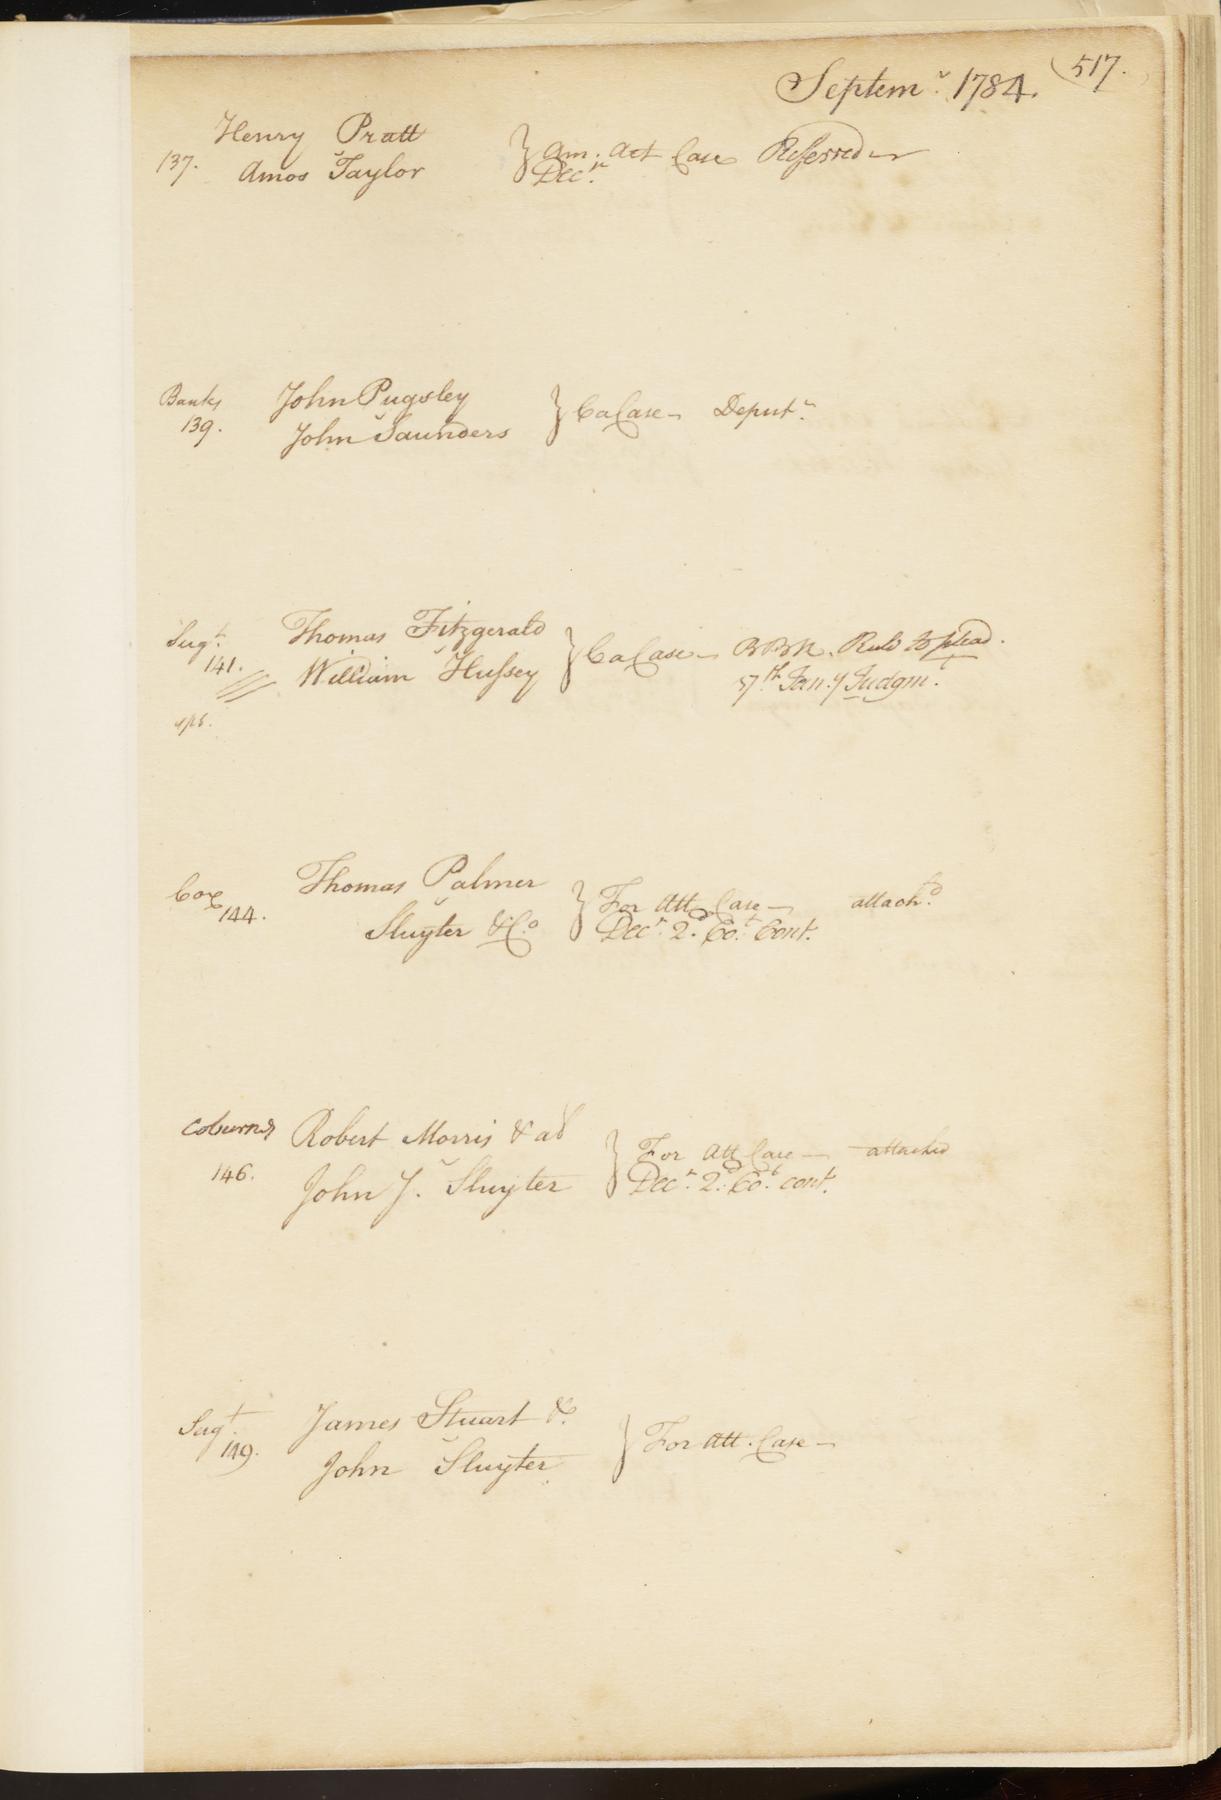 Septem.r 1784. (517.
Henry Pratt
137. v
Amos Taylor
} Am. Act Case Referred
Dec.r
Banks John Pugsley
139. v
John Saunders
} Ca Case Deput.
Serg.t Thomas Fitzgerald
141. v
William Hussey
} Ca Case Rule to plead.
Jan.y Judgm.
Cox Thomas Palmer
144. v
Sluyter & C.o
} For Att Case attach.d
Dec.r 2.d Co.t Cont.
Coburn Robert Morris & al
146. v
John J. Sluyter
} For Att Case attached
Dec.r 2.d Co.t cont.
Serg.t James Stuart &.
149. v
John Sluyter
} For Att. Case